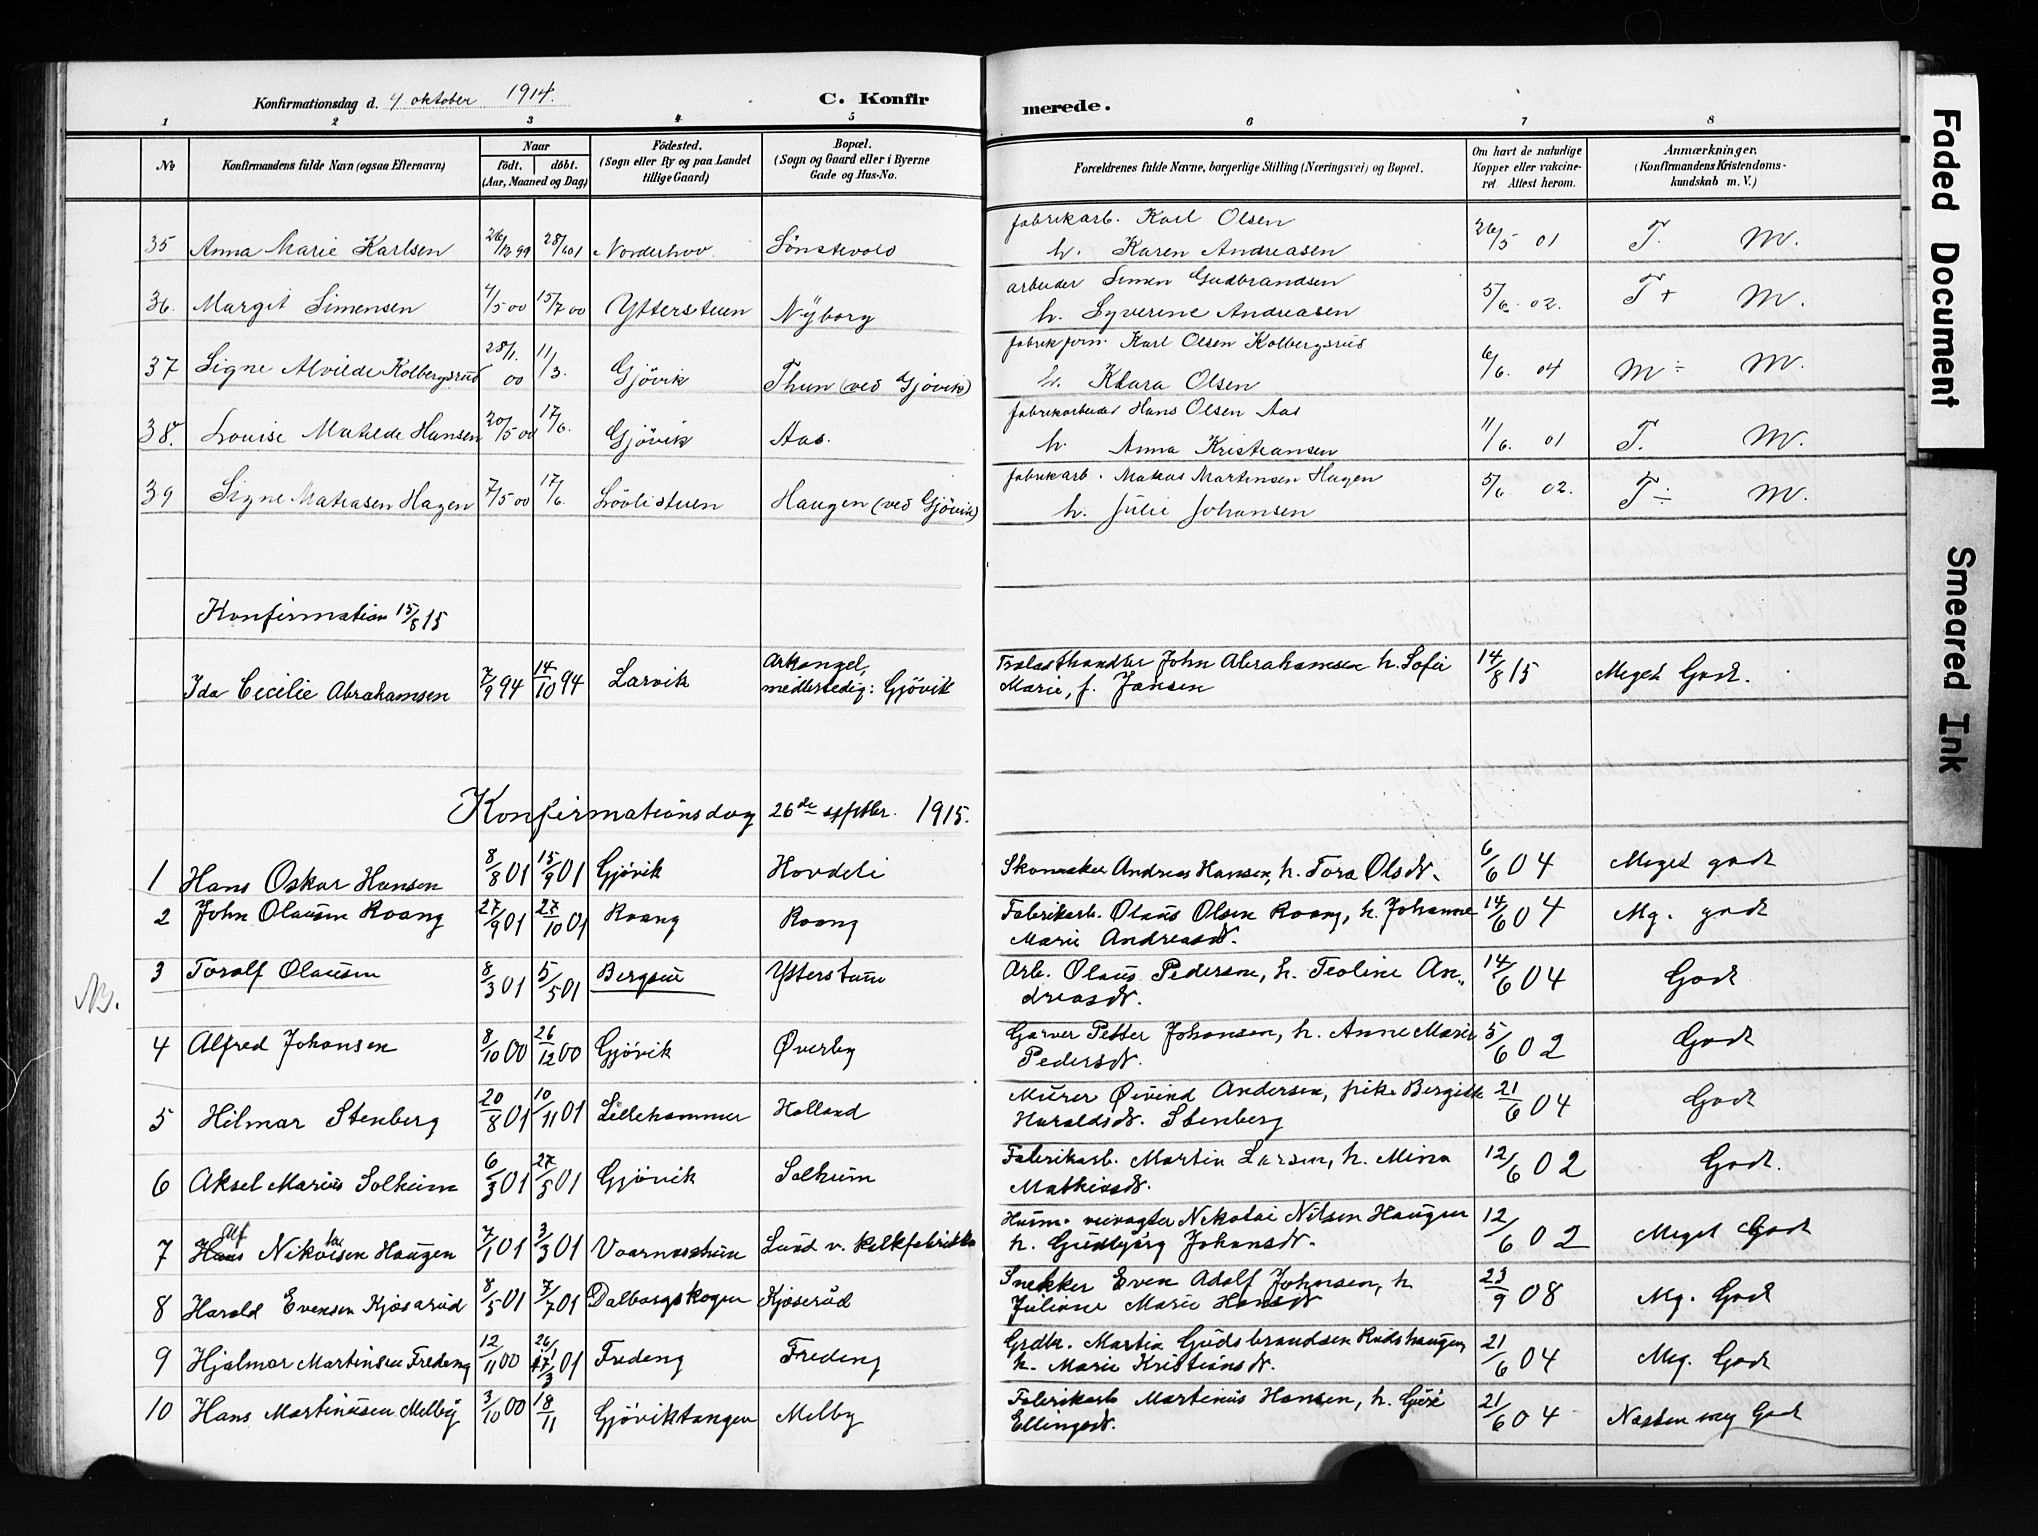 Konfirmationsdag d. 4 oktober 1914. C. Konfirmerede.
1 2 3 4 5 6 7 8
No Konfirmandens fulde Navn (ogsaa Efternavn) Naar født. døbt. (Aar, Maaned og Dag) Fødested. (Sogn eller By og paa Landet tillige Gaard) Bopæl. (Sogn og Gaard eller i Byerne Gade og Hus-No. Forældrenes fulde Navne, borgerlige Stilling (Næringsvei) og Bopæl. Om havt de naturlige Kopper eller vakcineret. Attest herom. Anmærkninger, (Konfirmandens Kristendomskundskab m. V.)
35 Anna Marie Karlsen 26/12 99 28/4 01 Norderhov Sönstevold fabrikarb. Karl Olsen
h. Karen Andreasen 26/5 01 T. M.
36. Margit Simensen 4/5 00 15/7 00 Ytterstuen Nyborg arbeider Simen Gudbrandsen
h. Syverine Andreasen 5/6. 02. T + M.
37 Signe Alvilde Kolbergsrud 28/1. 00 11/3. Gjövik Thun (ved Gjövik) fabrikform. Karl Olsen Kolbergsrud
h. Klara Olsen 6/6. 04 M ÷ M.
38. Lovise Matilde Hansen 20/5 00 17/6. Gjövik Aas. fabrikarbeider Hans Olsen Aas
h. Anna Kristiansen 11/6. 01 T. M.
39 Signe Matiasen Hagen 7/5 00 17/6. Lövlistuen Haugen (ved Gjövik) fabrikarb. Matias Martinsen Hagen
h. Julie Johansen 5/6 02. T ÷ M.
Konfirmation 15/8 15
Ida Cecilie Abrahamsen 7/9 94 14/10 94 Larvik Arkangel, midlertidig: Gjövik Trælasthandler John Abrahamsen h. Sofie
Marie, f. Jansen 14/8 15 Meget Godt.
Konfirmationsdag 26de septbr. 1915.
1 Hans Oskar Hansen 8/8 01 15/9 01 Gjövik Hovdeli Skomaker Andreas Hansen, h. Tora Olsdt. 6/6 04 Meget godt
2 John Olausen Roang 27/9 01 27/10 01 Roang Roang Fabrikarb. Olaus Olsen Roang, h. Johanne
Marie Andreasdt. 14/6 04 Mg. godt
NB.
3 Toralf Olausen 8/3 01 5/5 01 Bergseie Ytterstuen Arb. Olaus Pedersen, h. Teoline An-
dreasdt. 14/6 04 Godt
4 Alfred Johansen 8/10 00 26/12 00 Gjövik Øverby Garver Petter Johansen, h. Anne Marie
Pedersdt. 5/6 02 Godt
5 Hilmar Stenberg 20/8 01 10/11 01 Lillehammer Holland Murer Øivind Andersen, pike Bergitte
Haraldsdt. Stenberg 21/6 04 Godt
6 Aksel Marius Solheim 6/3 01 27/5 01 Gjövik Solheim Fabrikarb. Martin Larsen, h. Mina
Mathiasdt. 12/6 02 Godt.
7 Alf Nikolaisen Haugen 7/1 01 3/3 01 Lund v. kalkfabrikken Husm. veivogter Nikolai Nilsen Haugen
h. Gudbjörg Johansdt. 12/6 02 Meget Godt
8 Harald Evensen Kjøsarud 8/5 01 7/7 01 Dalborgskogen Kjøserud Snekker Even Adolf Johnsen, h
Juliane Marie Hansdt 23/9 08 Mg. Godt
9 Hjalmar Martinsen Fredeng 12/11 00 26/1 17/3 01 Fredeng Fredeng Grdbr. Martin Gudsbrandsen Rudshaugen,
h. Marie Kristiansdt. 21/6 04 Mg. Godt
10 Hans Martinusen Melby 3/10 00 18/11 Gjöviktangen Melby Fabrikarb Martinus Hansen, h. Guré
Ellingsdt. 21/6 04 Næsten mg Godt
Faded Document
Smeared Ink